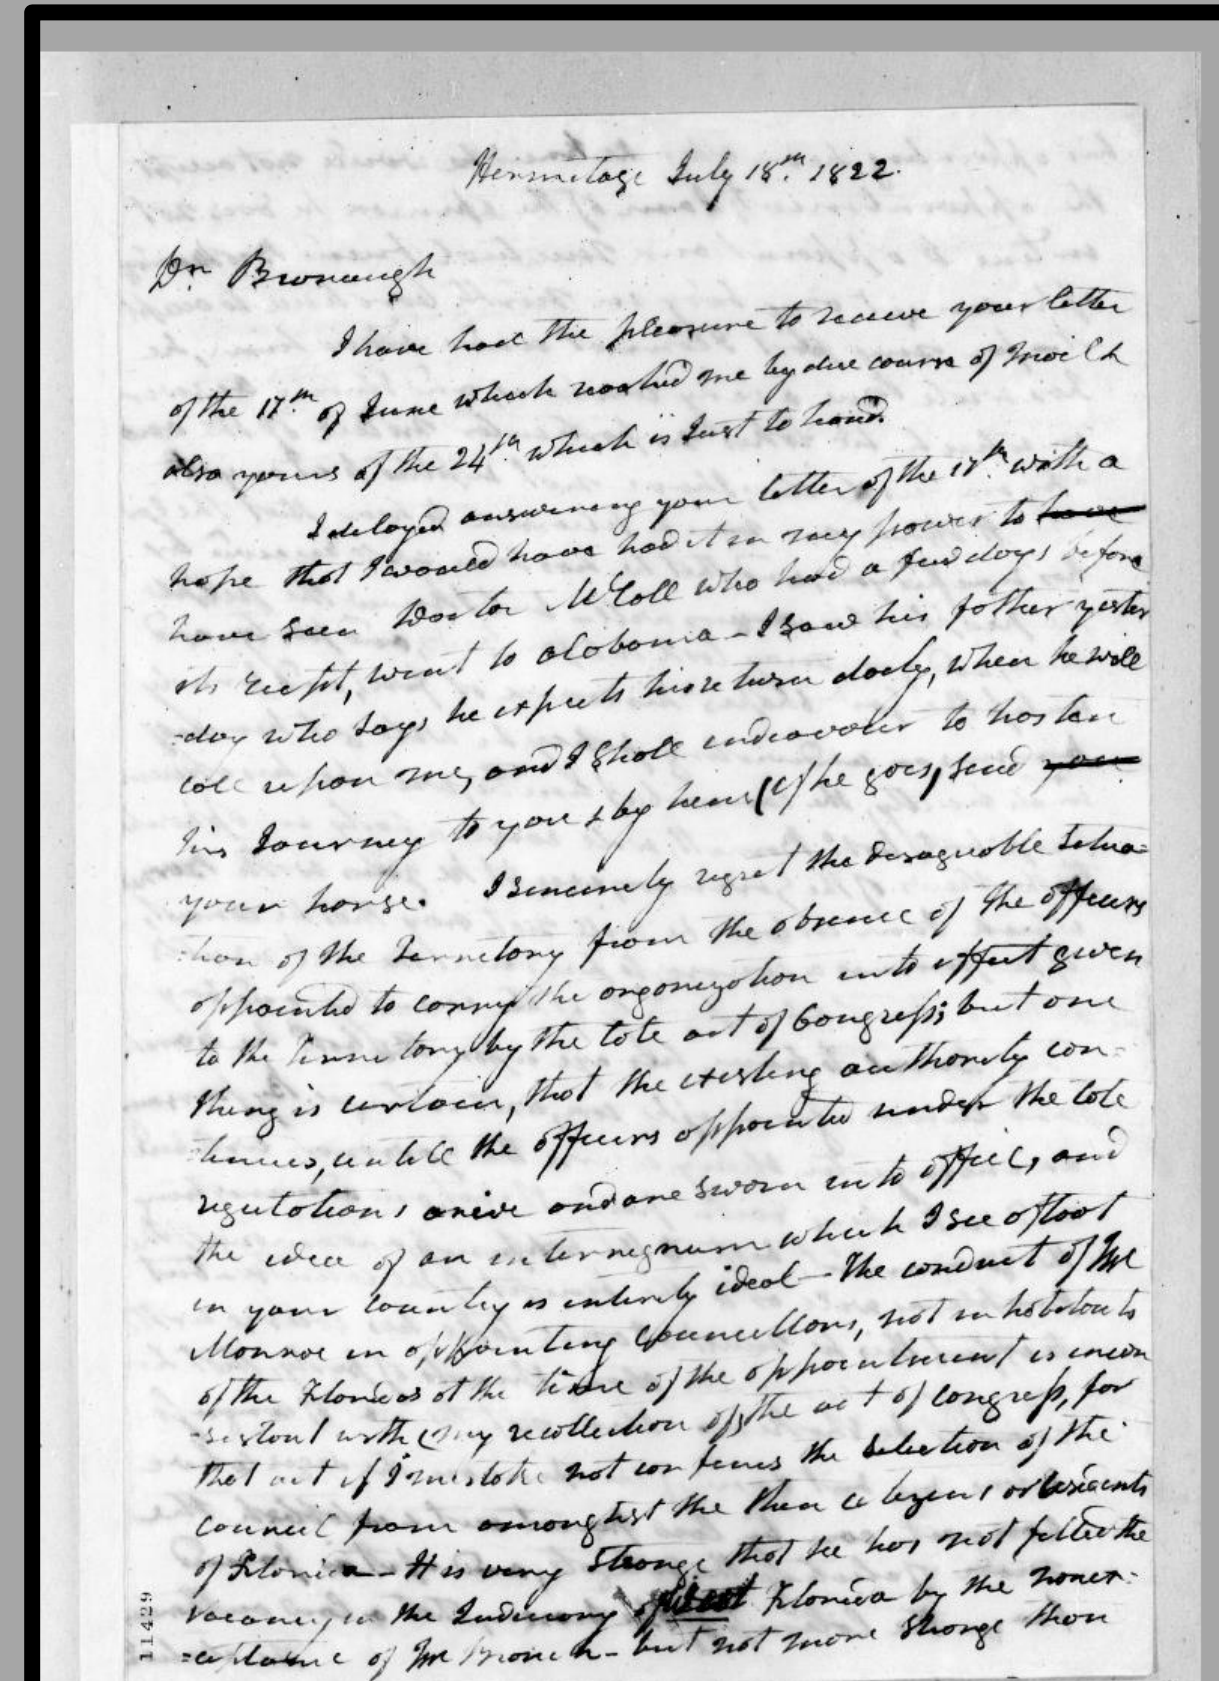 Hermitage July 18th. 1822.
Dr. Bronaugh
I have had the pleasure to receive your letter
of the 17th. of June which reached me by due course of mail &
also yours of the 24th. which is Just to hand.
I delayed answering your letter of the 17th. with a
hope that I would have had it in my power to have
have seen Doctor McCall who had a few days before
its recpt, went to alabama - I saw his father yester
=day who says he expects his return daily, when he will
call upon me, and I shall endeavour to hasten
his Journey to you & by him (if he goes) send you
your horse. I sincerely regret the disagreable situa=
=tion of the Territory from the absence of the officers
appointed to carry the organization into effect given
to the Territory by the late act of Congress; but one
thing is certain, that the existing authority con=
=tinues, untill the officers appointed under the late
regulations arive and are sworn into office, and
the idea of an interregnum which I see afloat
in your country is entirely ideal - The conduct of Mr
Monroe in appointing Councellors, not inhabitants
of the Floridas at the time of the appointment is incon
=sistant with my recollection of the act of congress, for
that act if I mistake not confines the selection of the
council from amongtst the then citizens or residents
of Florida - It is very strange that he has not filled the
vacancy in the Judiciary of West Florida by the nonex=
=ceptance of Mr - but not more strange than
11429